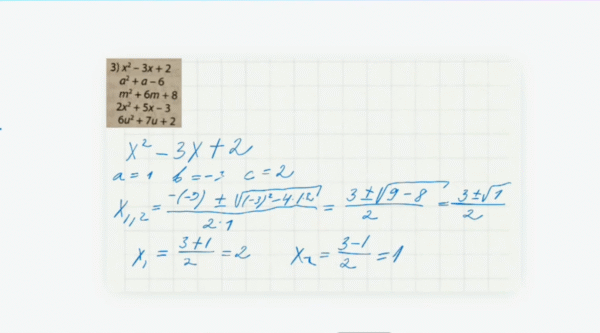 3) x² – 3x + 2
a² + a – 6
m² + 6m + 8
2x² + 5x – 3
6u² + 7u + 2
x² – 3x + 2
a = 1 b = –3 c = 2
x₁,₂ = (–(–3) ± √((–3)² – 4·1·2)) / (2·1) = (3 ± √(9 – 8)) / 2 = (3 ± √1) / 2
x₁ = (3+1)/2 = 2 x₂ = (3–1)/2 = 1